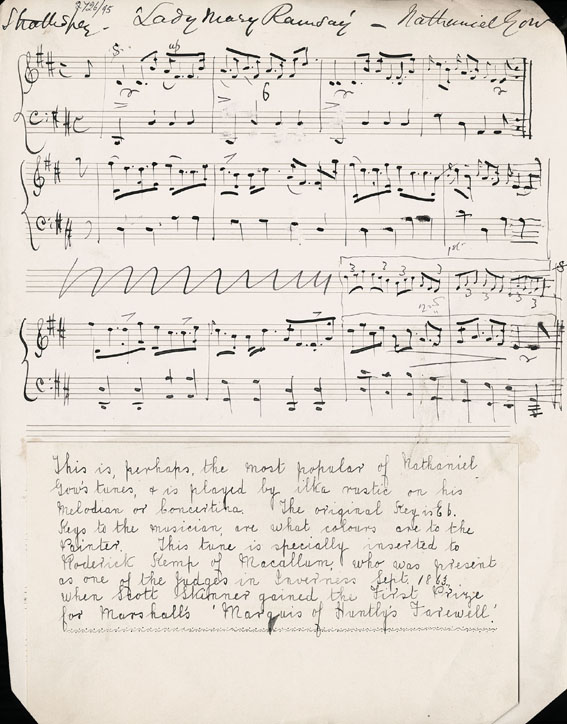 Strathspey. J. 796/95 Lady Mary Ramsay — Nathaniel Gow
up
6
1st
3 3 3 3 3 3 3
2nd
This is, perhaps, the most popular of Nathaniel
Gow's tunes, & is played by ilka rustic on his
Melodian or Concertina. The original Key is Eb.
Keys to the musician, are what colours are to the
Painter. This tune is specially inserted to
Roderick Kemp of Macallum, who was present
as one of the Judges in Inverness Sept. 1863,
when Scott Skinner gained the First Prize
for Marshall's 'Marquis of Huntly's Farewell'.